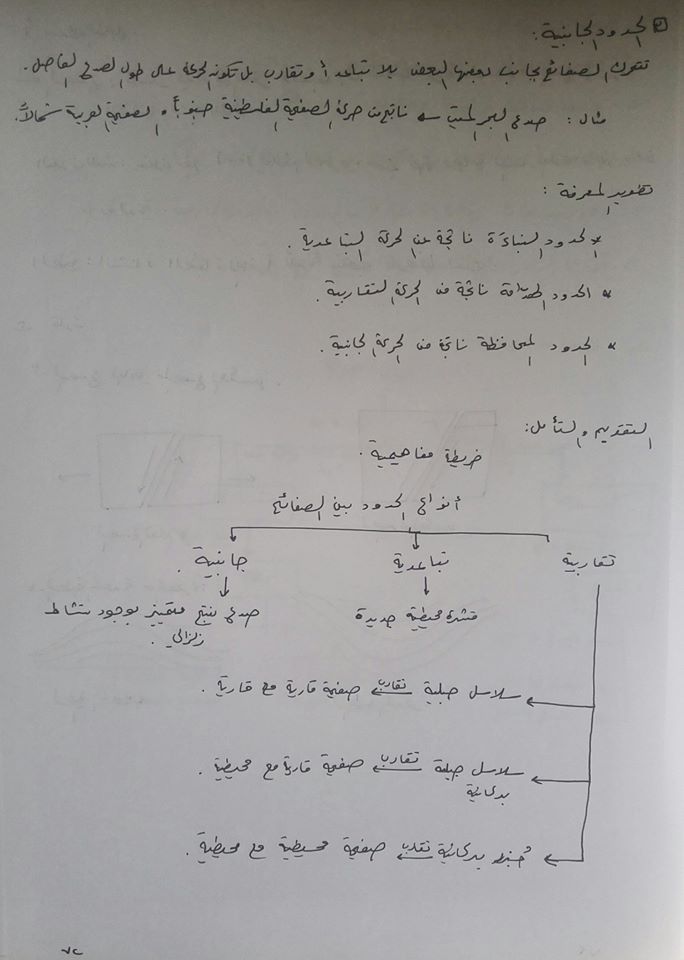 ٣ الحدود الجانبية:
تتحرك الصفائح بجانب بعضها البعض بلا تباعد أو تقارب بل تكون الحركة على طول الصدع الفاصل.
مثال: صدع البحر الميت ← ناتج من حركة الصفيحة الفلسطينية جنوباً والصفيحة العربية شمالاً.
تطوير المعرفة:
* الحدود البناءة ناتجة عن الحركة التباعدية.
* الحدود الهدامة ناتجة من الحركة التقاربية.
* الحدود المحافظة ناتجة من الحركة الجانبية.
التقويم والتأمل:
خريطة مفاهيمية.
أنواع الحدود بين الصفائح
تقاربية تباعدية جانبية.
قشرة محيطية جديدة صدع ينتج متميز بوجود نشاط
زلزالي.
سلاسل جبلية تقارب صفيحة قارية مع قارية.
سلاسل جبلية تقارب صفيحة قارية مع محيطية.
بركانية
جزر بركانية تقارب صفيحة محيطية مع محيطية.
٧٢